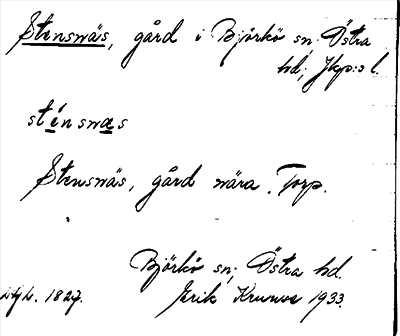 Stensnäs, gård i Björkö sn; Östra
hd; Jkp:s l.
sténsnæs
Stensnäs, gård nära Torp.
Björkö sn; Östra hd.
1827. Erik 1933.